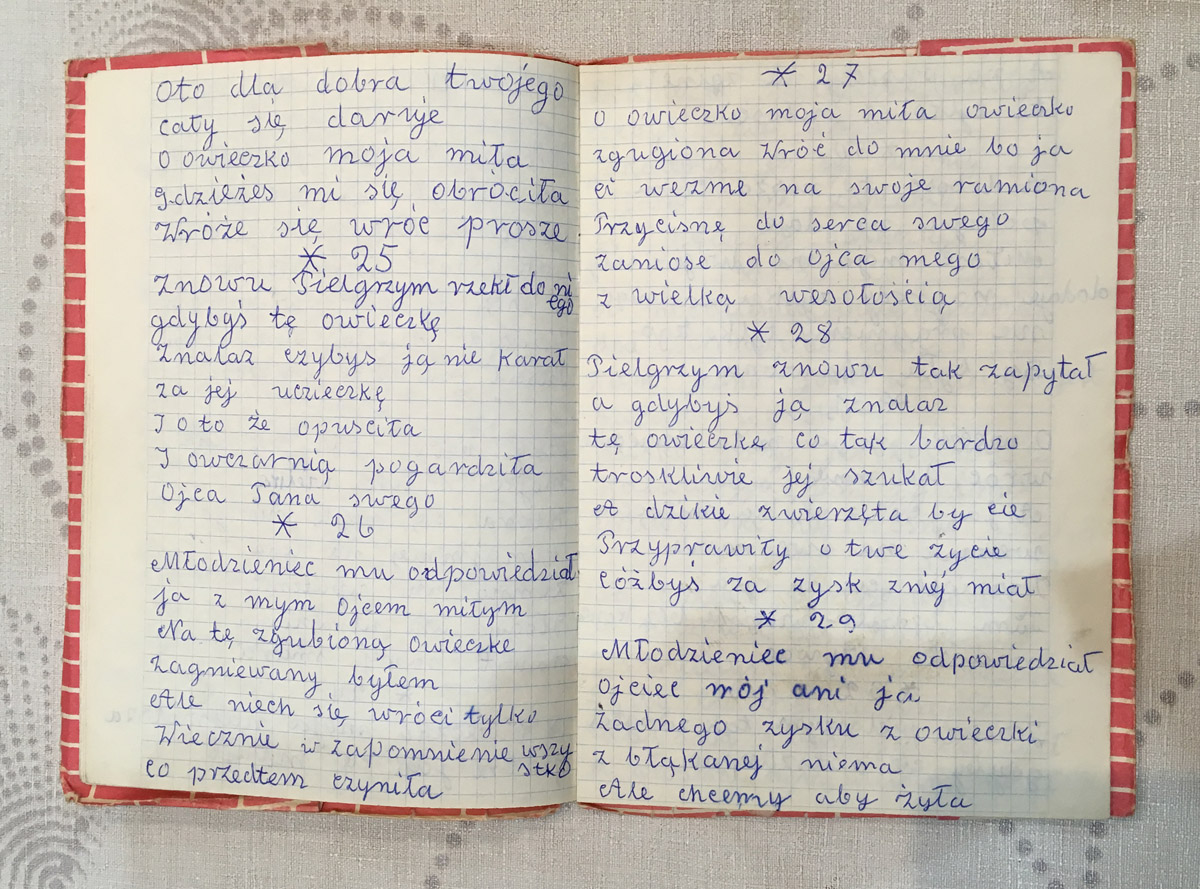 Oto dla dobra twojego
cały się daruje
O owieczko moja miła
gdzieżeś mi się obróciła
Wróże się wróć prosze
* 25
Znowu Pielgrzym rzekł do niego
gdybyś tę owieczkę
Znalaz czybyś ją nie karał
za jej ucieczkę
I o to że opuściła
I owczarnią pogardziła
Ojca Pana swego
* 26
Młodzieniec mu odpowiedział
ja z mym ojcem miłym
Na tę zgubioną owieczke
Zagniewany byłem
Ale niech się wróci tylko
Wiecznie w zapomnienie wszystko
co przedtem czyniła
* 27
O owieczko moja miła owieczko
zgugiona Wróć do mnie bo ja
ci wezme na swoje ramiona
Przycisnę do serca swego
zaniose do ojca mego
z wielką wesołością
* 28
Pielgrzym znowu tak zapytał
a gdybyś ją znalaz
tę owieczkę co tak bardzo
troskliwie jej szukał
A dzikie zwierzęta by cie
Przyprawiły o twe życie
cóżbyś za zysk zniej miał
* 29
Młodzieniec mu odpowiedział
Ojciec mój ani ja
żadnego zysku z owieczki
z błąkanej niema
Ale chcemy aby żyła